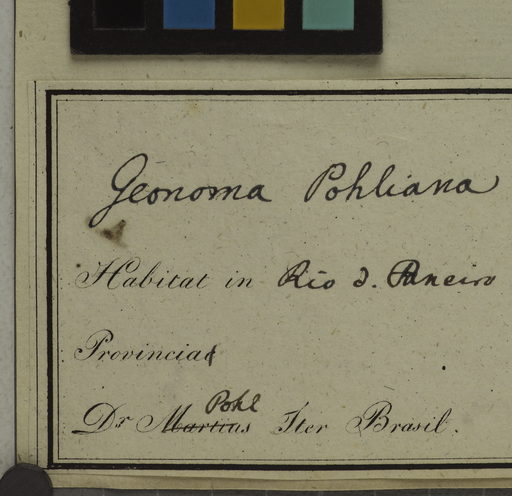 Geonoma Pohliana
Habitat in Rio d. Janeiro
Provincia
Pohl
Dr Martius Iter Brasil.